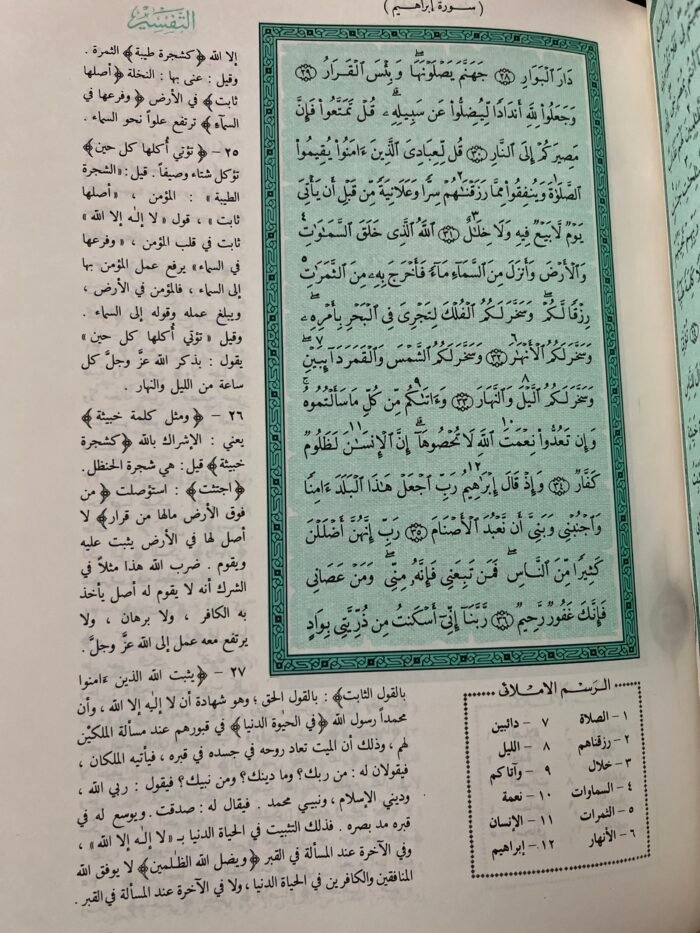 ( سورة إبراهيم )
دَارَ ٱلْبَوَارِ ﴿٢٨﴾ جَهَنَّمَ يَصْلَوْنَهَا ۖ وَبِئْسَ ٱلْقَرَارُ ﴿٢٩﴾
وَجَعَلُوا۟ لِلَّهِ أَندَادًا لِّيُضِلُّوا۟ عَن سَبِيلِهِۦ ۗ قُلْ تَمَتَّعُوا۟ فَإِنَّ
مَصِيرَكُمْ إِلَى ٱلنَّارِ ﴿٣٠﴾ قُل لِّعِبَادِىَ ٱلَّذِينَ ءَامَنُوا۟ يُقِيمُوا۟
ٱلصَّلَوٰةَ وَيُنفِقُوا۟ مِمَّا رَزَقْنَٰهُمْ سِرًّا وَعَلَانِيَةً مِّن قَبْلِ أَن يَأْتِىَ
يَوْمٌ لَّا بَيْعٌ فِيهِ وَلَا خِلَٰلٌ ﴿٣١﴾ ٱللَّهُ ٱلَّذِى خَلَقَ ٱلسَّمَٰوَٰتِ
وَٱلْأَرْضَ وَأَنزَلَ مِنَ ٱلسَّمَآءِ مَآءً فَأَخْرَجَ بِهِۦ مِنَ ٱلثَّمَرَٰتِ
رِزْقًا لَّكُمْ ۖ وَسَخَّرَ لَكُمُ ٱلْفُلْكَ لِتَجْرِىَ فِى ٱلْبَحْرِ بِأَمْرِهِۦ ۖ
وَسَخَّرَ لَكُمُ ٱلْأَنْهَٰرَ ﴿٣٢﴾ وَسَخَّرَ لَكُمُ ٱلشَّمْسَ وَٱلْقَمَرَ دَآئِبَيْنِ ۖ
وَسَخَّرَ لَكُمُ ٱلَّيْلَ وَٱلنَّهَارَ ﴿٣٣﴾ وَءَاتَىٰكُم مِّن كُلِّ مَا سَأَلْتُمُوهُ ۚ
وَإِن تَعُدُّوا۟ نِعْمَتَ ٱللَّهِ لَا تُحْصُوهَآ ۗ إِنَّ ٱلْإِنسَٰنَ لَظَلُومٌ
كَفَّارٌ ﴿٣٤﴾ وَإِذْ قَالَ إِبْرَٰهِيمُ رَبِّ ٱجْعَلْ هَٰذَا ٱلْبَلَدَ ءَامِنًا
وَٱجْنُبْنِى وَبَنِىَّ أَن نَّعْبُدَ ٱلْأَصْنَامَ ﴿٣٥﴾ رَبِّ إِنَّهُنَّ أَضْلَلْنَ
كَثِيرًا مِّنَ ٱلنَّاسِ ۖ فَمَن تَبِعَنِى فَإِنَّهُۥ مِنِّى ۖ وَمَنْ عَصَانِى
فَإِنَّكَ غَفُورٌ رَّحِيمٌ ﴿٣٦﴾ رَّبَّنَآ إِنِّىٓ أَسْكَنتُ مِن ذُرِّيَّتِى بِوَادٍ
الرسم الإملائي
١ - الصلاة
٢ - رزقناهم
٣ - خلال
٤ - السماوات
٥ - الثمرات
٦ - الأنهار
٧ - دائبين
٨ - الليل
٩ - وآتاكم
١٠ - نعمة
١١ - الإنسان
١٢ - إبراهيم
التفسير
إلا الله ﴿كشجرة طيبة﴾ الثمرة .
وقيل : عنى بها : النخلة ﴿أصلها
ثابت﴾ في الأرض ﴿وفرعها في
السمآء﴾ ترتفع علواً نحو السماء .
٢٥ – ﴿تؤتي أُكلها كل حين﴾
تؤكل شتاء وصيفاً . قيل: «الشجرة
الطيبة» : المؤمن ، «أصلها
ثابت» ، قول «لا إلٰه إلا الله»
ثابت في قلب المؤمن ، «وفرعها
في السماء» يرفع عمل المؤمن بها
إلى السماء ، فالمؤمن في الأرض ،
ويبلغ عمله وقوله إلى السماء .
وقيل «تؤتي أُكلها كل حين»
يقول : بذكر الله عزَّ وجلَّ كل
ساعة من الليل والنهار .
٢٦ – ﴿ومثل كلمة خبيثة﴾
يعني : الإشراك بالله ﴿كشجرة
خبيثة﴾ قيل: هي شجرة الحنظل .
﴿اجتثت﴾ : استؤصلت ﴿من
فوق الأرض مالها من قرار﴾ لا
أصل لها في الأرض يثبت عليه
ويقوم . ضرب الله هذا مثلاً في
الشرك أنه لا يقوم له أصل يأخذ
به الكافر ، ولا برهان ، ولا
يرتفع معه عمل إلى الله عزَّ وجلَّ .
٢٧ – ﴿يثبت الله الذين ءامنوا
بالقول الثابت﴾ : بالقول الحق ؛ وهو شهادة أن لا إلٰه إلا الله ، وأن
محمداً رسول الله ﴿في الحيٰوة الدنيا﴾ في قبورهم عند مسألة الملكيْن
لهم ، وذلك أن الميت تعاد روحه في جسده في قبره ، فيأتيه الملكان ،
فيقولان له : من ربك؟ وما دينك؟ ومن نبيك؟ فيقول : ربي الله ،
وديني الإسلام ، ونبيي محمد . فيقال له : صدقت . ويوسع له في
قبره مد بصره . فذلك التثبيت في الحياة الدنيا بـ «لا إلٰه إلا الله» ،
وفي الآخرة عند المسألة في القبر ﴿ويضل الله الظٰلمين﴾ لا يوفق الله
المنافقين والكافرين في الحياة الدنيا ، ولا في الآخرة عند المسألة في القبر .